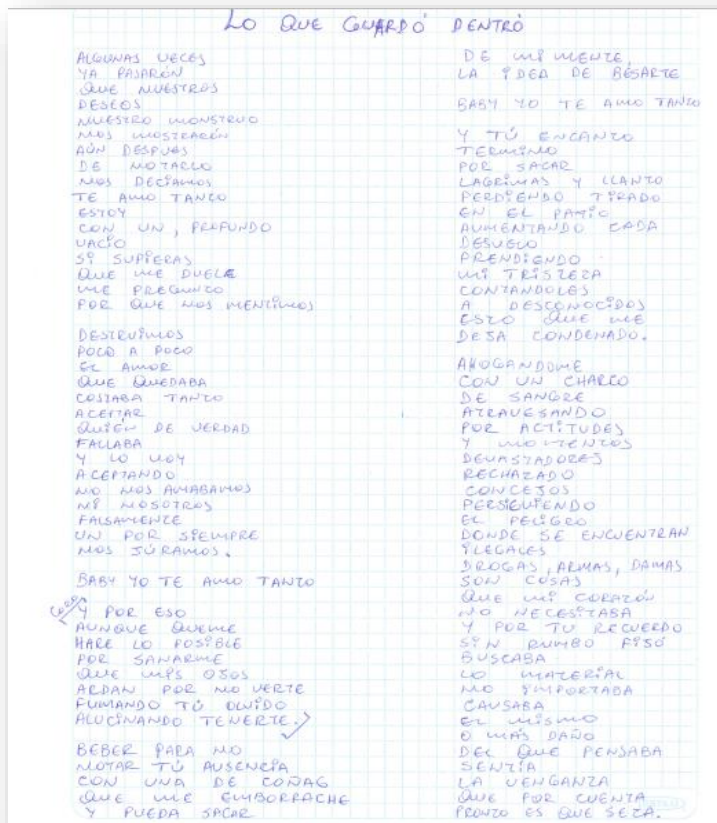 LO QUE GUARDÓ DENTRÓ
ALGUNAS VECES
YA PASARÓN
QUE NUESTROS
DESEOS
NUESTRO MONSTRUO
NOS MOSTRARÓN
AÚN DESPUES
DE NOTARLO
NOS DECIAMOS
TE AMO TANTO
ESTOY
CON UN, PROFUNDO
VACÍO
SÍ SUPIERAS
QUE ME DUELE
ME PREGUNTO
POR QUE NOS MENTIMOS
DESTRUÍMOS
POCO A POCO
EL AMOR
QUE QUEDABA
COSTABA TANTO
ACEPTAR
QUIÉN DE VERDAD
FALLABA
Y LO HOY
ACEPTANDO
NO NOS AMABAMOS
NÍ NOSOTROS
FALSAMENTE
UN POR SIEMPRE
NOS JÚRAMOS.
BABY YO TE AMO TANTO
CORO
Y POR ESO
AUNQUE QUEME
HARE LO POSIBLE
POR SANARME
QUE MIS OJOS
ARDAN POR NO VERTE
FUMANDO TÚ OLVIDO
ALUCINANDO TENERTE.
BEBER PARA NO
NOTAR TÚ AUSENCIA
CON UNA DE COÑAG
QUE ME EMBORRACHE
Y PUEDA SACAR
DE MI MENTE,
LA IDEA DE BESARTE
BABY YO TE AMO TANTO
Y TÚ ENCANTO
TERMINO
POR SACAR
LAGRIMAS Y LLANTO
PERDIENDO TIRADO
EN EL PATIO
AUMENTANDO CADA
DESVELO
PRENDIENDO
MI TRISTEZA
CONTANDOLES
A DESCONOCIDOS
ESTO QUE ME
DEJA CONDENADO.
AHOGANDOME
CON UN CHARCO
DE SANGRE
ATRAVESANDO
POR ACTITUDES
Y MOMENTOS
DEVASTADORES
RECHAZADO
CONCEJOS
PERSIGUIENDO
EL PELIGRO
DONDE SE ENCUENTRAN
ILEGALES
DROGAS, ARMAS, DAMAS
SON COSAS
QUE MI CORAZÓN
NO NECESITABA
Y POR TU RECUERDO
SIN RUMBO FIJÓ
BUSCABA
LO MATERIAL
NO IMPORTABA
CAUSABA
EL MISMO
O MÁS DAÑO
DEL QUE PENSABA
SENTÍA
LA VENGANZA
QUE POR CUENTA
PRONTO ES QUE SEZA.